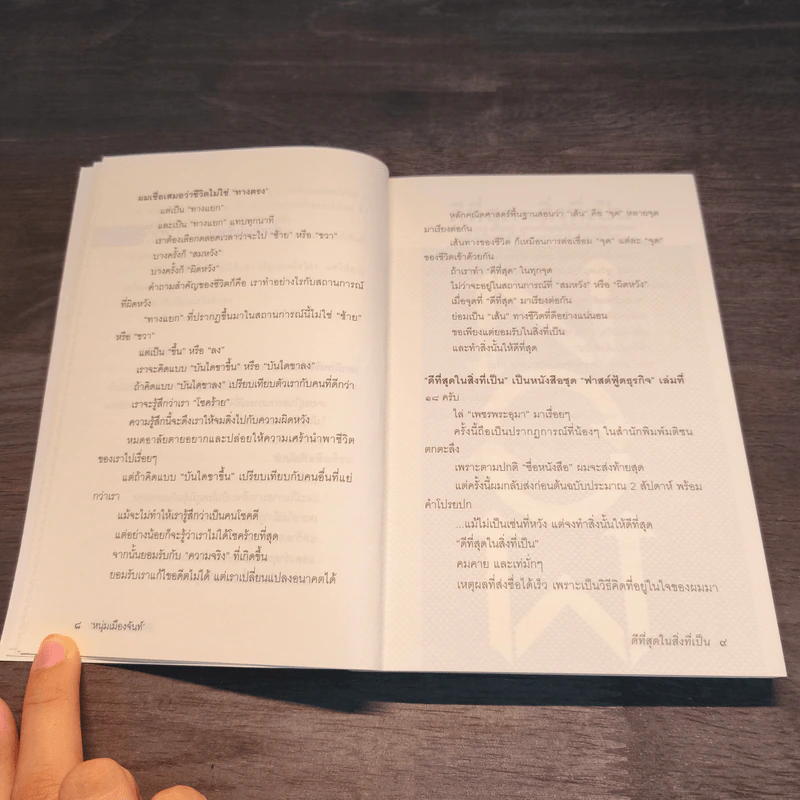 ผมเชื่อเสมอว่าชีวิตไม่ใช่ "ทางตรง"
แต่เป็น "ทางแยก"
และเป็น "ทางแยก" แทบทุกนาที
เราต้องเลือกตลอดเวลาว่าจะไป "ซ้าย" หรือ "ขวา"
บางครั้งก็ "สมหวัง"
บางครั้งก็ "ผิดหวัง"
คำถามสำคัญของชีวิตก็คือ เราทำอย่างไรกับสถานการณ์
ที่ผิดหวัง
"ทางแยก" ที่ปรากฏขึ้นมาในสถานการณ์นี้ไม่ใช่ "ซ้าย"
หรือ "ขวา"
แต่เป็น "ขึ้น" หรือ "ลง"
เราจะคิดแบบ "บันไดขาขึ้น" หรือ "บันไดขาลง"
ถ้าคิดแบบ "บันไดขาลง" เปรียบเทียบตัวเรากับคนที่ดีกว่า
เราจะรู้สึกว่าเรา "โชคร้าย"
ความรู้สึกนี้จะดึงเราให้จมดิ่งไปกับความผิดหวัง
หมดอาลัยตายอยากและปล่อยให้ความเศร้านำพาชีวิต
ของเราไปเรื่อยๆ
แต่ถ้าคิดแบบ "บันไดขาขึ้น" เปรียบเทียบกับคนอื่นที่แย่
กว่าเรา
แม้จะไม่ทำให้เรารู้สึกว่าเป็นคนโชคดี
แต่อย่างน้อยก็จะรู้ว่าเราไม่ได้โชคร้ายที่สุด
จากนั้นยอมรับกับ "ความจริง" ที่เกิดขึ้น
ยอมรับเราแก้ไขอดีตไม่ได้ แต่เราเปลี่ยนแปลงอนาคตได้
๘ 'หนุ่มเมืองจันท์'
หลักคณิตศาสตร์พื้นฐานสอนว่า "เส้น" คือ "จุด" หลายจุด
มาเรียงต่อกัน
เส้นทางของชีวิต ก็เหมือนการต่อเชื่อม "จุด" แต่ละ "จุด"
ของชีวิตเข้าด้วยกัน
ถ้าเราทำ "ดีที่สุด" ในทุกจุด
ไม่ว่าจะอยู่ในสถานการณ์ที่ "สมหวัง" หรือ "ผิดหวัง"
เมื่อจุดที่ "ดีที่สุด" มาเรียงต่อกัน
ย่อมเป็น "เส้น" ทางชีวิตที่ดีอย่างแน่นอน
ขอเพียงแต่ยอมรับในสิ่งที่เป็น
และทำสิ่งนั้นให้ดีที่สุด
"ดีที่สุดในสิ่งที่เป็น" เป็นหนังสือชุด "ฟาสต์ฟู้ดธุรกิจ" เล่มที่
๑๘ ครับ
ไล่ "เพชรพระอุมา" มาเรื่อยๆ
ครั้งนี้ถือเป็นปรากฏการณ์ที่น้องๆ ในสำนักพิมพ์มติชน
ตกตะลึง
เพราะตามปกติ "ชื่อหนังสือ" ผมจะส่งท้ายสุด
แต่ครั้งนี้ผมกลับส่งก่อนต้นฉบับประมาณ 2 สัปดาห์ พร้อม
คำโปรยปก
...แม้ไม่เป็นเช่นที่หวัง แต่จงทำสิ่งนั้นให้ดีที่สุด
"ดีที่สุดในสิ่งที่เป็น"
คมคาย และเท่มั่กๆ
เหตุผลที่ส่งชื่อได้เร็ว เพราะเป็นวิธีคิดที่อยู่ในใจของผมมา
ดีที่สุดในสิ่งที่เป็น ๙